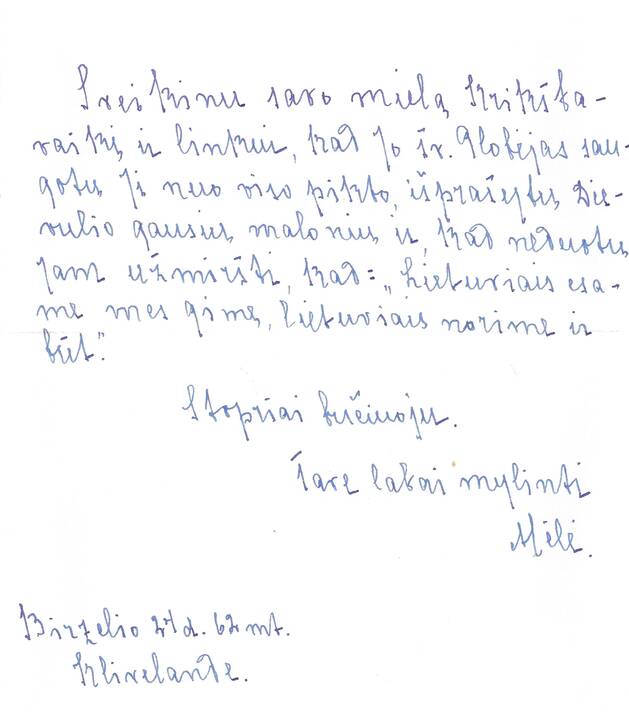 Sveikinu savo mielą Krikšta-
vaikį ir linkiu, kad jo šv. Globėjas sau-
gotų jį nuo viso pikto, išprašytų Die-
vulio gausių malonių ir, kad neduotų
jam užmiršti, kad: „Lietuviais esa-
me mes gimę, lietuviais norime ir
būt".
Stopriai bučiuoju.
Tave labai mylinti
Birželio 24 d. 62 mt.
Klivelande.